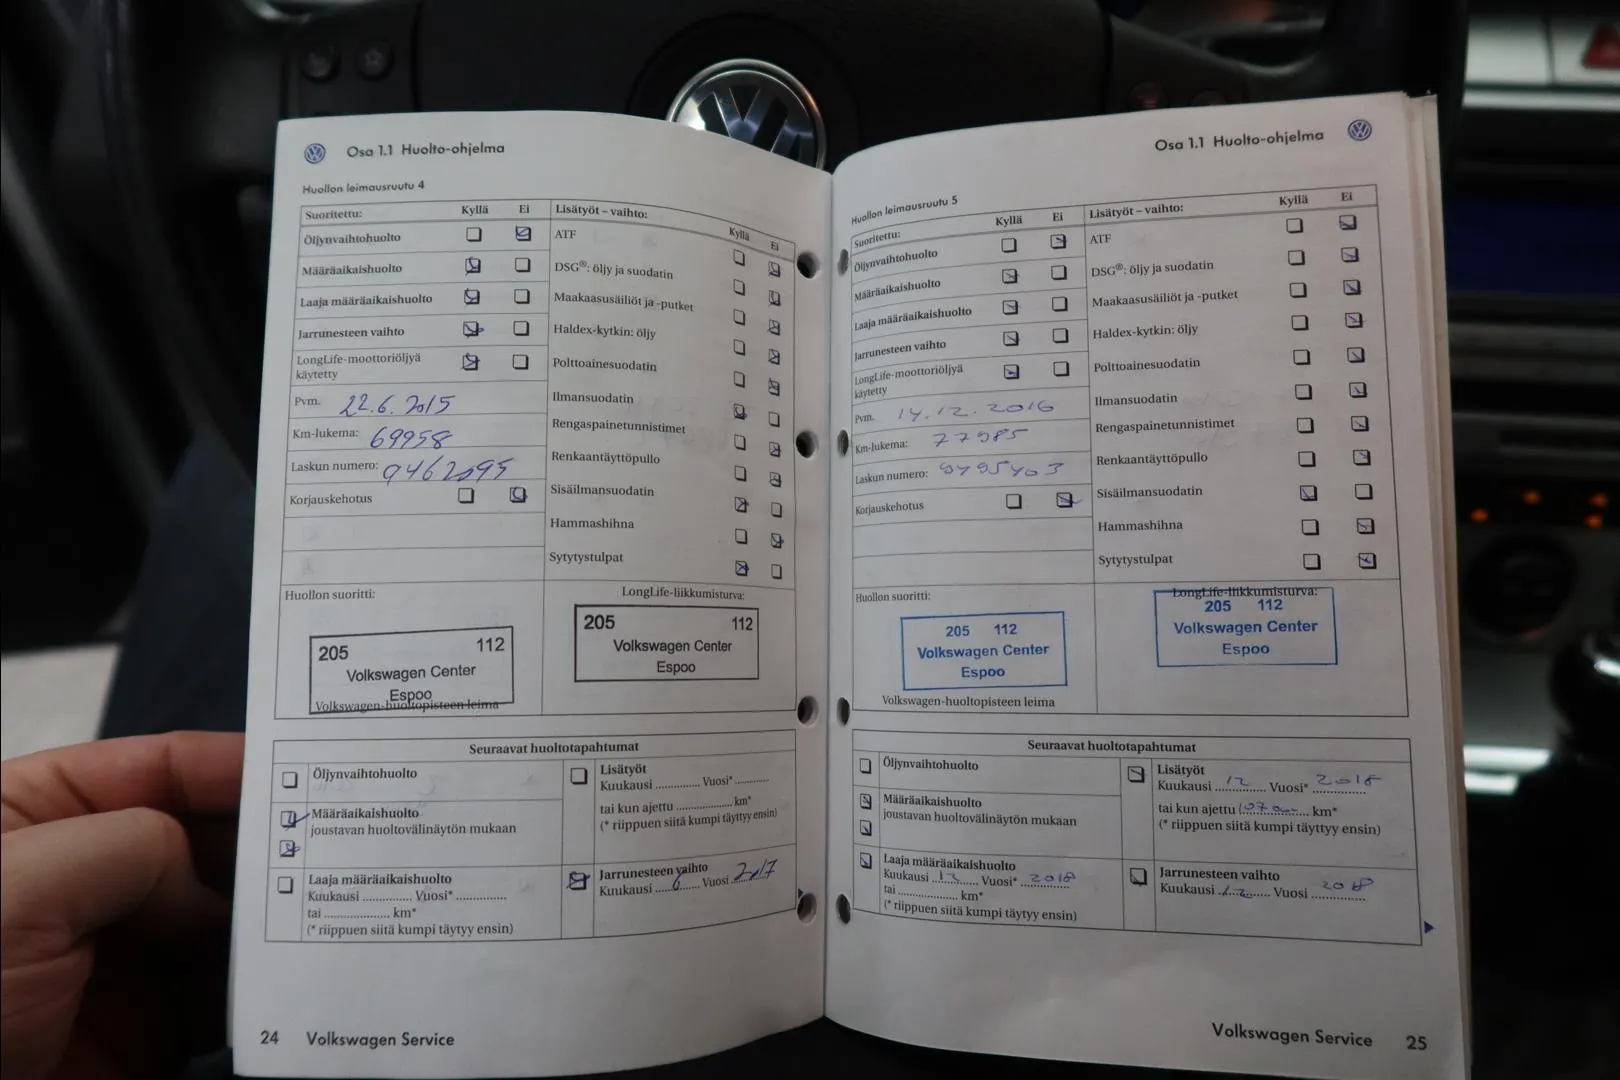 Osa 1.1 Huolto-ohjelma
Huollon leimausruutu 4
Suoritettu: Kyllä Ei
Öljynvaihtohuolto
Määräaikaishuolto
Laaja määräaikaishuolto
Jarrunesteen vaihto
LongLife-moottoriöljyä
käytetty
Pvm. 22.6.2015
Km-lukema: 69958
Laskun numero: 9462095
Korjauskehotus
Lisätyöt – vaihto: Kyllä Ei
ATF
DSG®: öljy ja suodatin
Maakaasusäiliöt ja -putket
Haldex-kytkin: öljy
Polttoainesuodatin
Ilmansuodatin
Rengaspainetunnistimet
Renkaantäyttöpullo
Sisäilmansuodatin
Hammashihna
Sytytystulpat
Huollon suoritti:
205 112
Volkswagen Center
Espoo
Volkswagen-huoltopisteen leima
LongLife-liikkumisturva:
205 112
Volkswagen Center
Espoo
Seuraavat huoltotapahtumat
Öljynvaihtohuolto
Määräaikaishuolto
joustavan huoltovälinäytön mukaan
Laaja määräaikaishuolto
Kuukausi .............. Vuosi* ..............
tai .................... km*
(* riippuen siitä kumpi täytyy ensin)
Lisätyöt
Kuukausi .............. Vuosi* ..............
tai kun ajettu .................... km*
(* riippuen siitä kumpi täytyy ensin)
Jarrunesteen vaihto
Kuukausi 6 Vuosi 2017
24 Volkswagen Service
Osa 1.1 Huolto-ohjelma
Huollon leimausruutu 5
Suoritettu: Kyllä Ei
Öljynvaihtohuolto
Määräaikaishuolto
Laaja määräaikaishuolto
Jarrunesteen vaihto
LongLife-moottoriöljyä
käytetty
Pvm. 14.12.2016
Km-lukema: 77985
Laskun numero: 9495403
Korjauskehotus
Lisätyöt – vaihto: Kyllä Ei
ATF
DSG®: öljy ja suodatin
Maakaasusäiliöt ja -putket
Haldex-kytkin: öljy
Polttoainesuodatin
Ilmansuodatin
Rengaspainetunnistimet
Renkaantäyttöpullo
Sisäilmansuodatin
Hammashihna
Sytytystulpat
Huollon suoritti:
205 112
Volkswagen Center
Espoo
Volkswagen-huoltopisteen leima
LongLife-liikkumisturva:
205 112
Volkswagen Center
Espoo
Seuraavat huoltotapahtumat
Öljynvaihtohuolto
Määräaikaishuolto
joustavan huoltovälinäytön mukaan
Laaja määräaikaishuolto
Kuukausi 12 Vuosi* 2018
tai .................... km*
(* riippuen siitä kumpi täytyy ensin)
Lisätyöt
Kuukausi 12 Vuosi* 2018
tai kun ajettu 107000 km*
(* riippuen siitä kumpi täytyy ensin)
Jarrunesteen vaihto
Kuukausi 12 Vuosi 2018
Volkswagen Service 25